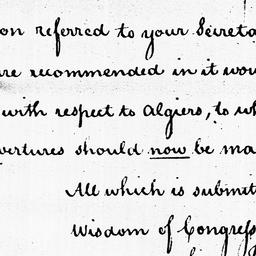 on referred to your Secreta
re recommended in it wou
with respect to Algiers, to wh
vertures should now be ma
All which is submit
Wisdom of Congress